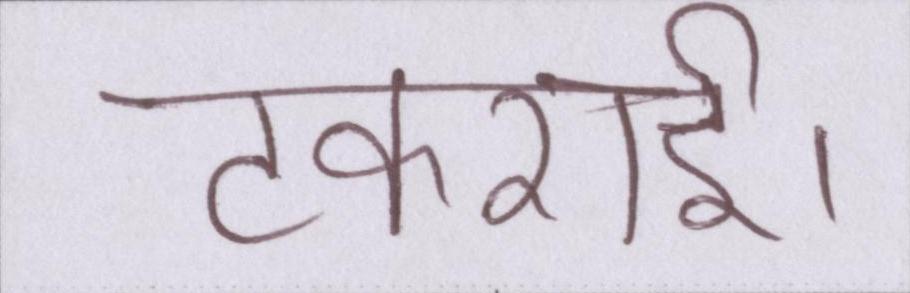 टकराई।